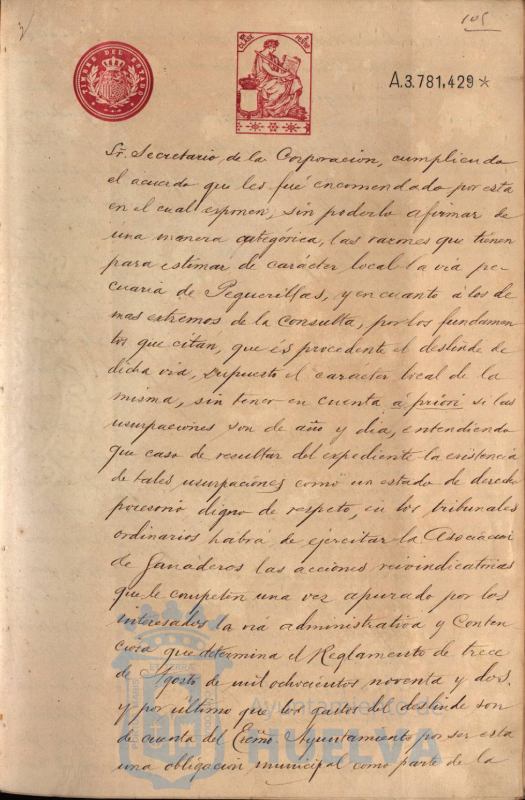 105
TIMBRE DEL ESTADO
A.3.781,429*
Sr. Secretario, de la Corporacion, cumpliendo
el acuerdo que les fué encomendado por esta
en el cual exponen, sin poderlo afirmar de
una manera categórica, las razones que tienen
para estimar de carácter local la via pe-
cuaria de Pequerillas, y en cuanto á los de
mas extremos de la consulta, por los fundamen
tos que citan, que es procedente el deslinde de
dicha via, supuesto el caracter local de la
misma, sin tener en cuenta á priori si las
usurpaciones son de año y dia, entendiendo
que caso de resultar del expediente la existencia
de tales usurpaciones como un estado de derecho
posesorio digno de respeto, en los tribunales
ordinarios habrá de ejercitar la Asociacion
de Ganaderos las acciones reivindicatorias
que le competen una vez apurado por los
interesados la via administrativa y Conten
ciosa que determina el Reglamento de trece
de Agosto de mil ochocientos noventa y dos.
y por último que los gastos del deslinde son
de cuenta del Excmo. Ayuntamiento por ser esta
una obligacion municipal como parte de la
Ayuntamiento de
HUELVA